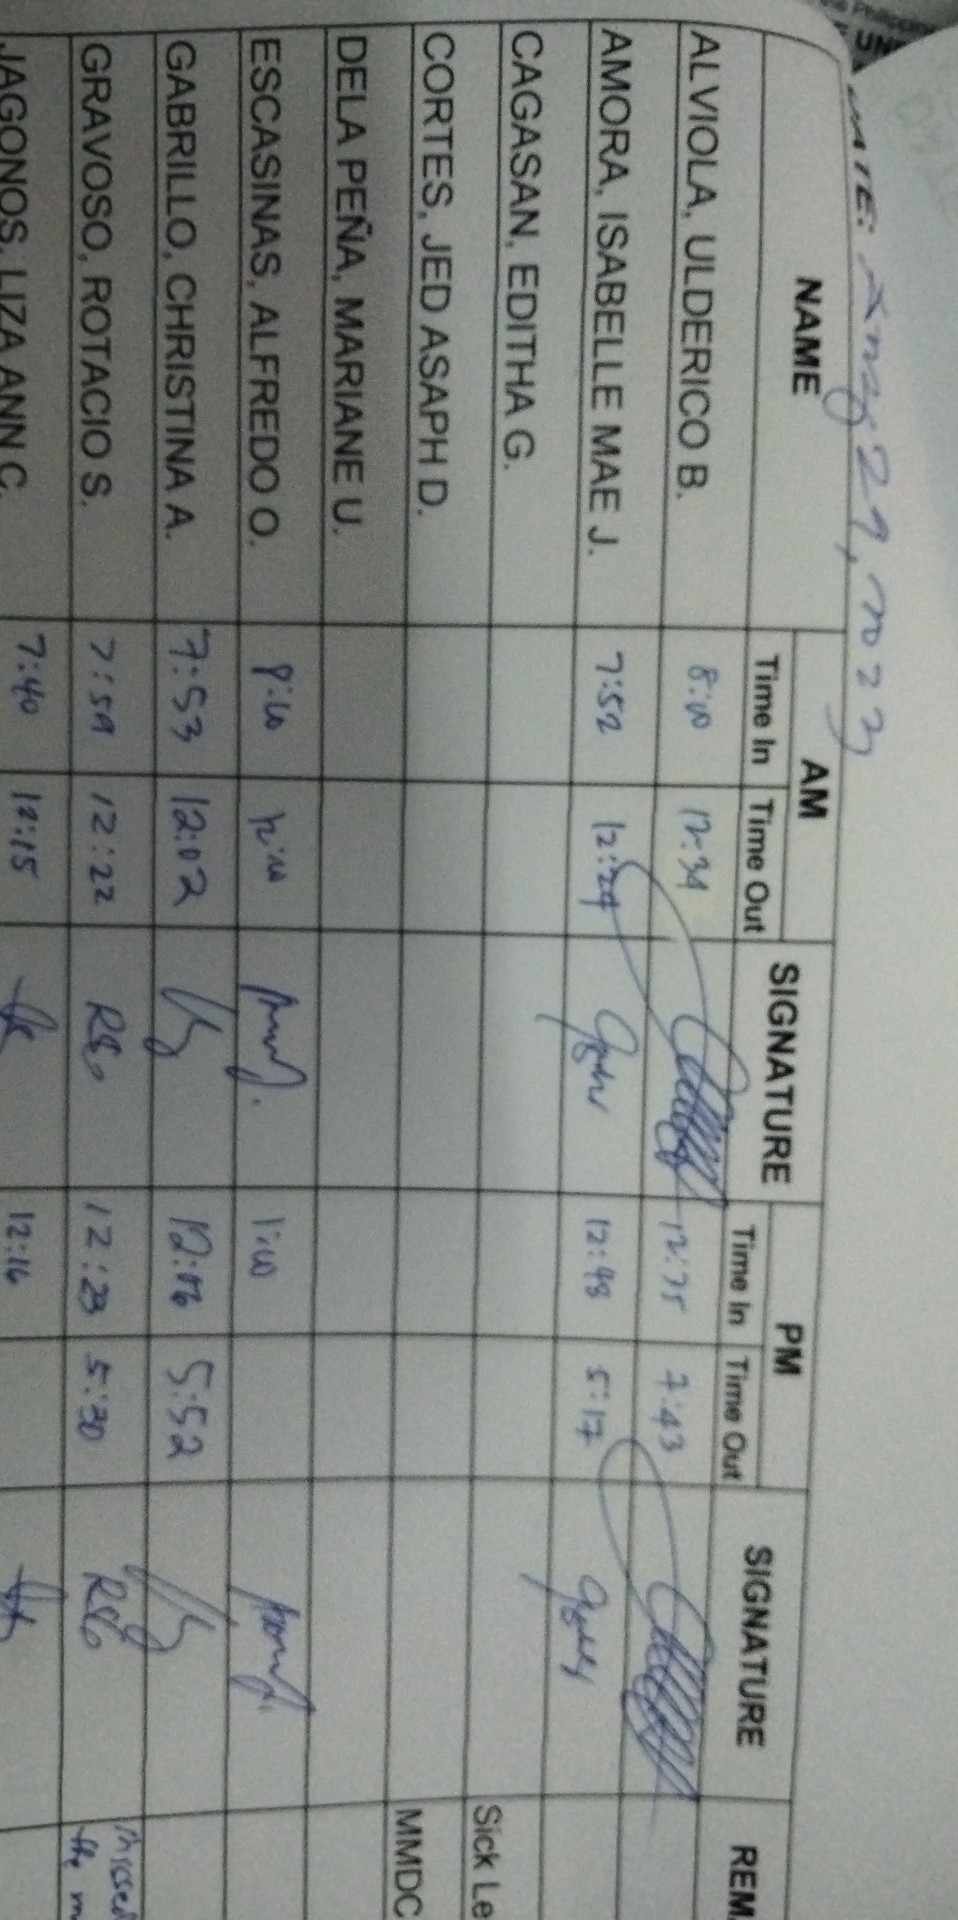 DATE: 29, 2023
NAME AM SIGNATURE PM SIGNATURE REM
Time In Time Out Time In Time Out
ALVIOLA, ULDERICO B. 8:00 12:34 7:43
AMORA, ISABELLE MAE J. 7:52 12:29 12:48 5:17
CAGASAN, EDITHA G. Sick Le
CORTES, JED ASAPH D. MMDC
DELA PEÑA, MARIANE U.
ESCASINAS, ALFREDO O. 8:00 12:00 1:00
GABRILLO, CHRISTINA A. 7:53 12:02 12:06 5:52
GRAVOSO, ROTACIO S. 7:59 12:22 RSG 12:23 5:30 RSG the
JAGONOS, LIZA ANN C. 7:40 12:15 12:16